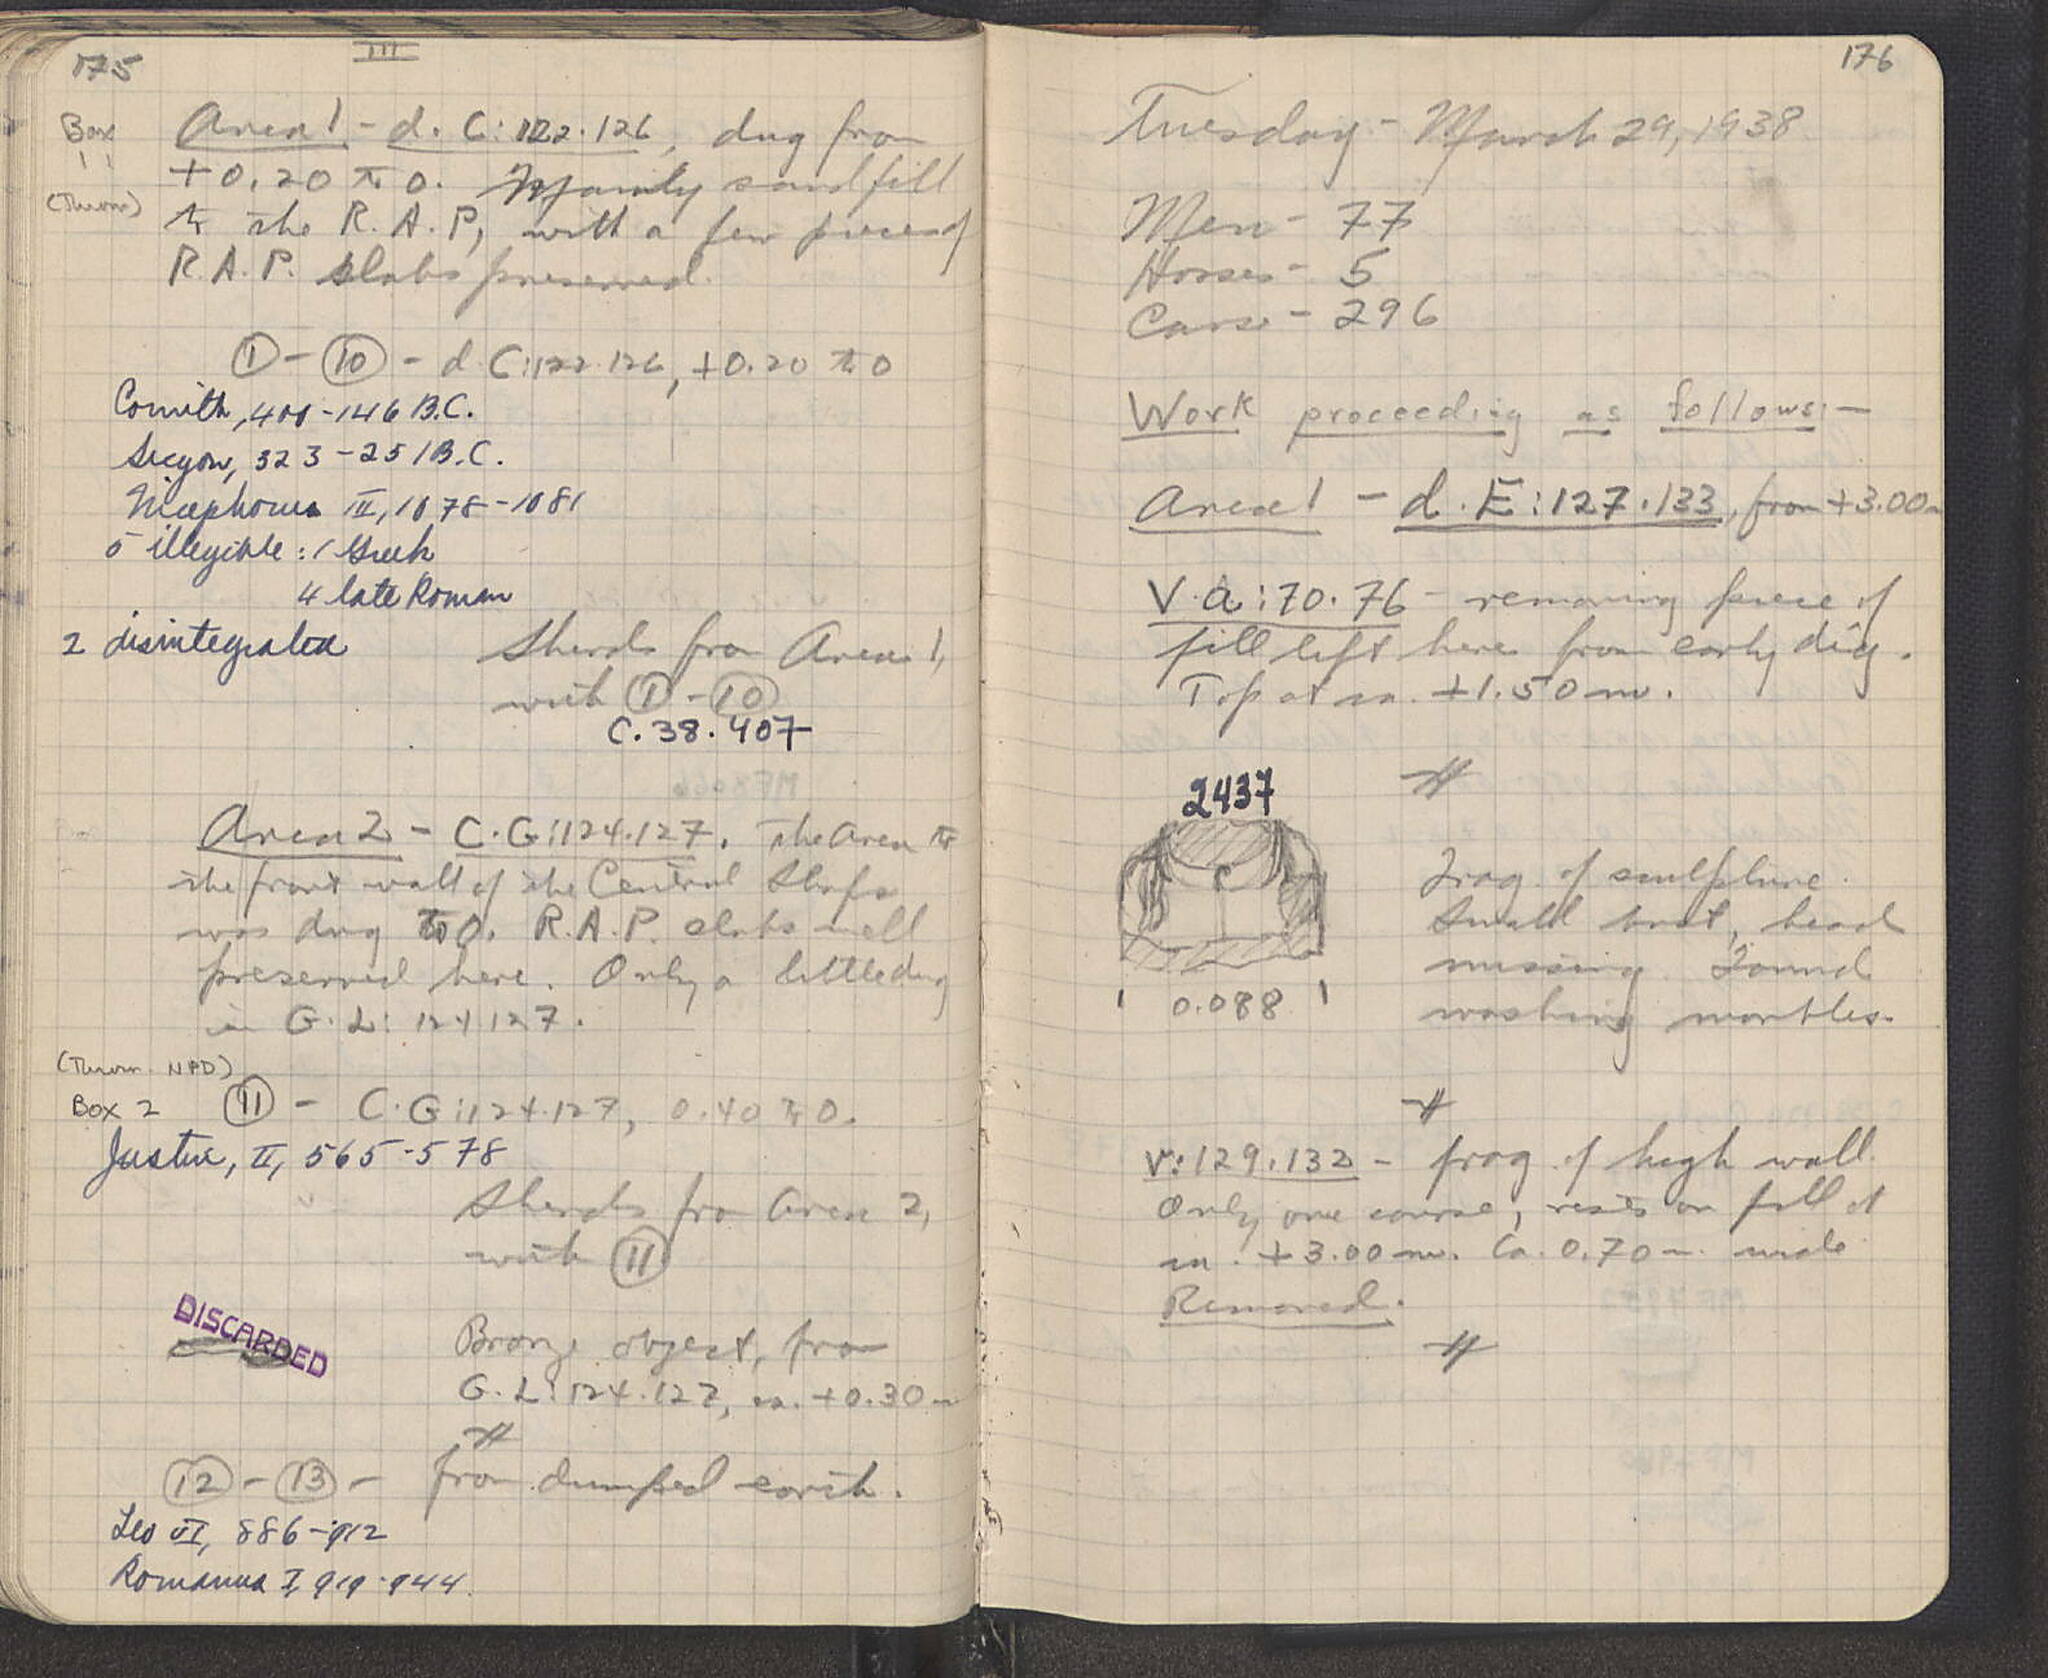 175
III
Box
11
(Thrown)
Area 1 - d. C:122.126, dug from
+0.20 to 0. Mainly sand fill
to the R.A.P., with a few pieces of
R.A.P. slabs preserved.
① - ⑩ - d. C:122.126, +0.20 to 0
Corinth, 400-146 B.C.
Sicyon, 323-251 B.C.
Nicephorus III, 1078-1081
5 illegible: 1 Greek
4 late Roman
2 disintegrated
Sherds from Area 1,
with ① - ⑩
C.38.407
Area 2 - C.G:124.127. The area to
the front wall of the Central Shops
was dug to 0. R.A.P. slabs well
preserved here. Only a little dug
in G.L:124.127.
(Thrown NPD)
Box 2
⑪ - C.G:124.127, 0.40 to 0.
Justin, II, 565-578
Sherds from Area 2,
with ⑪
DISCARDED
Bronze object, from
G.L:124.127, ca. +0.30 m
#
⑫ - ⑬ - from dumped earth.
Leo VI, 886-912
Romanus I, 919-944.
176
Tuesday - March 29, 1938
Men - 77
Horses - 5
Cars - 296
Work proceeding as follows:-
Area 1 - d.E:127.133, from +3.00 m
V.a:70.76 - removing piece of
fill left here from early dig.
Top at ca. +1.50 m.
#
2437
Frag. of sculpture.
Small bust, head
missing. Found
washing marbles.
0.088
#
V:129.132 - frag. of high wall.
Only one course, rests on fill at
ca. +3.00 m. Ca. 0.70 m. wide
Removed.
#